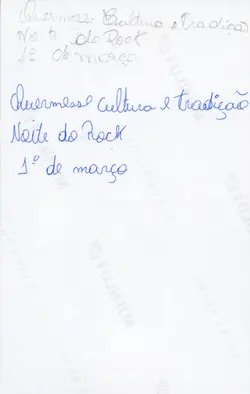 Quermesse Cultura e Tradição
Noite do Rock
1º de março
Quermesse cultura e tradição
Noite do Rock
1º de março